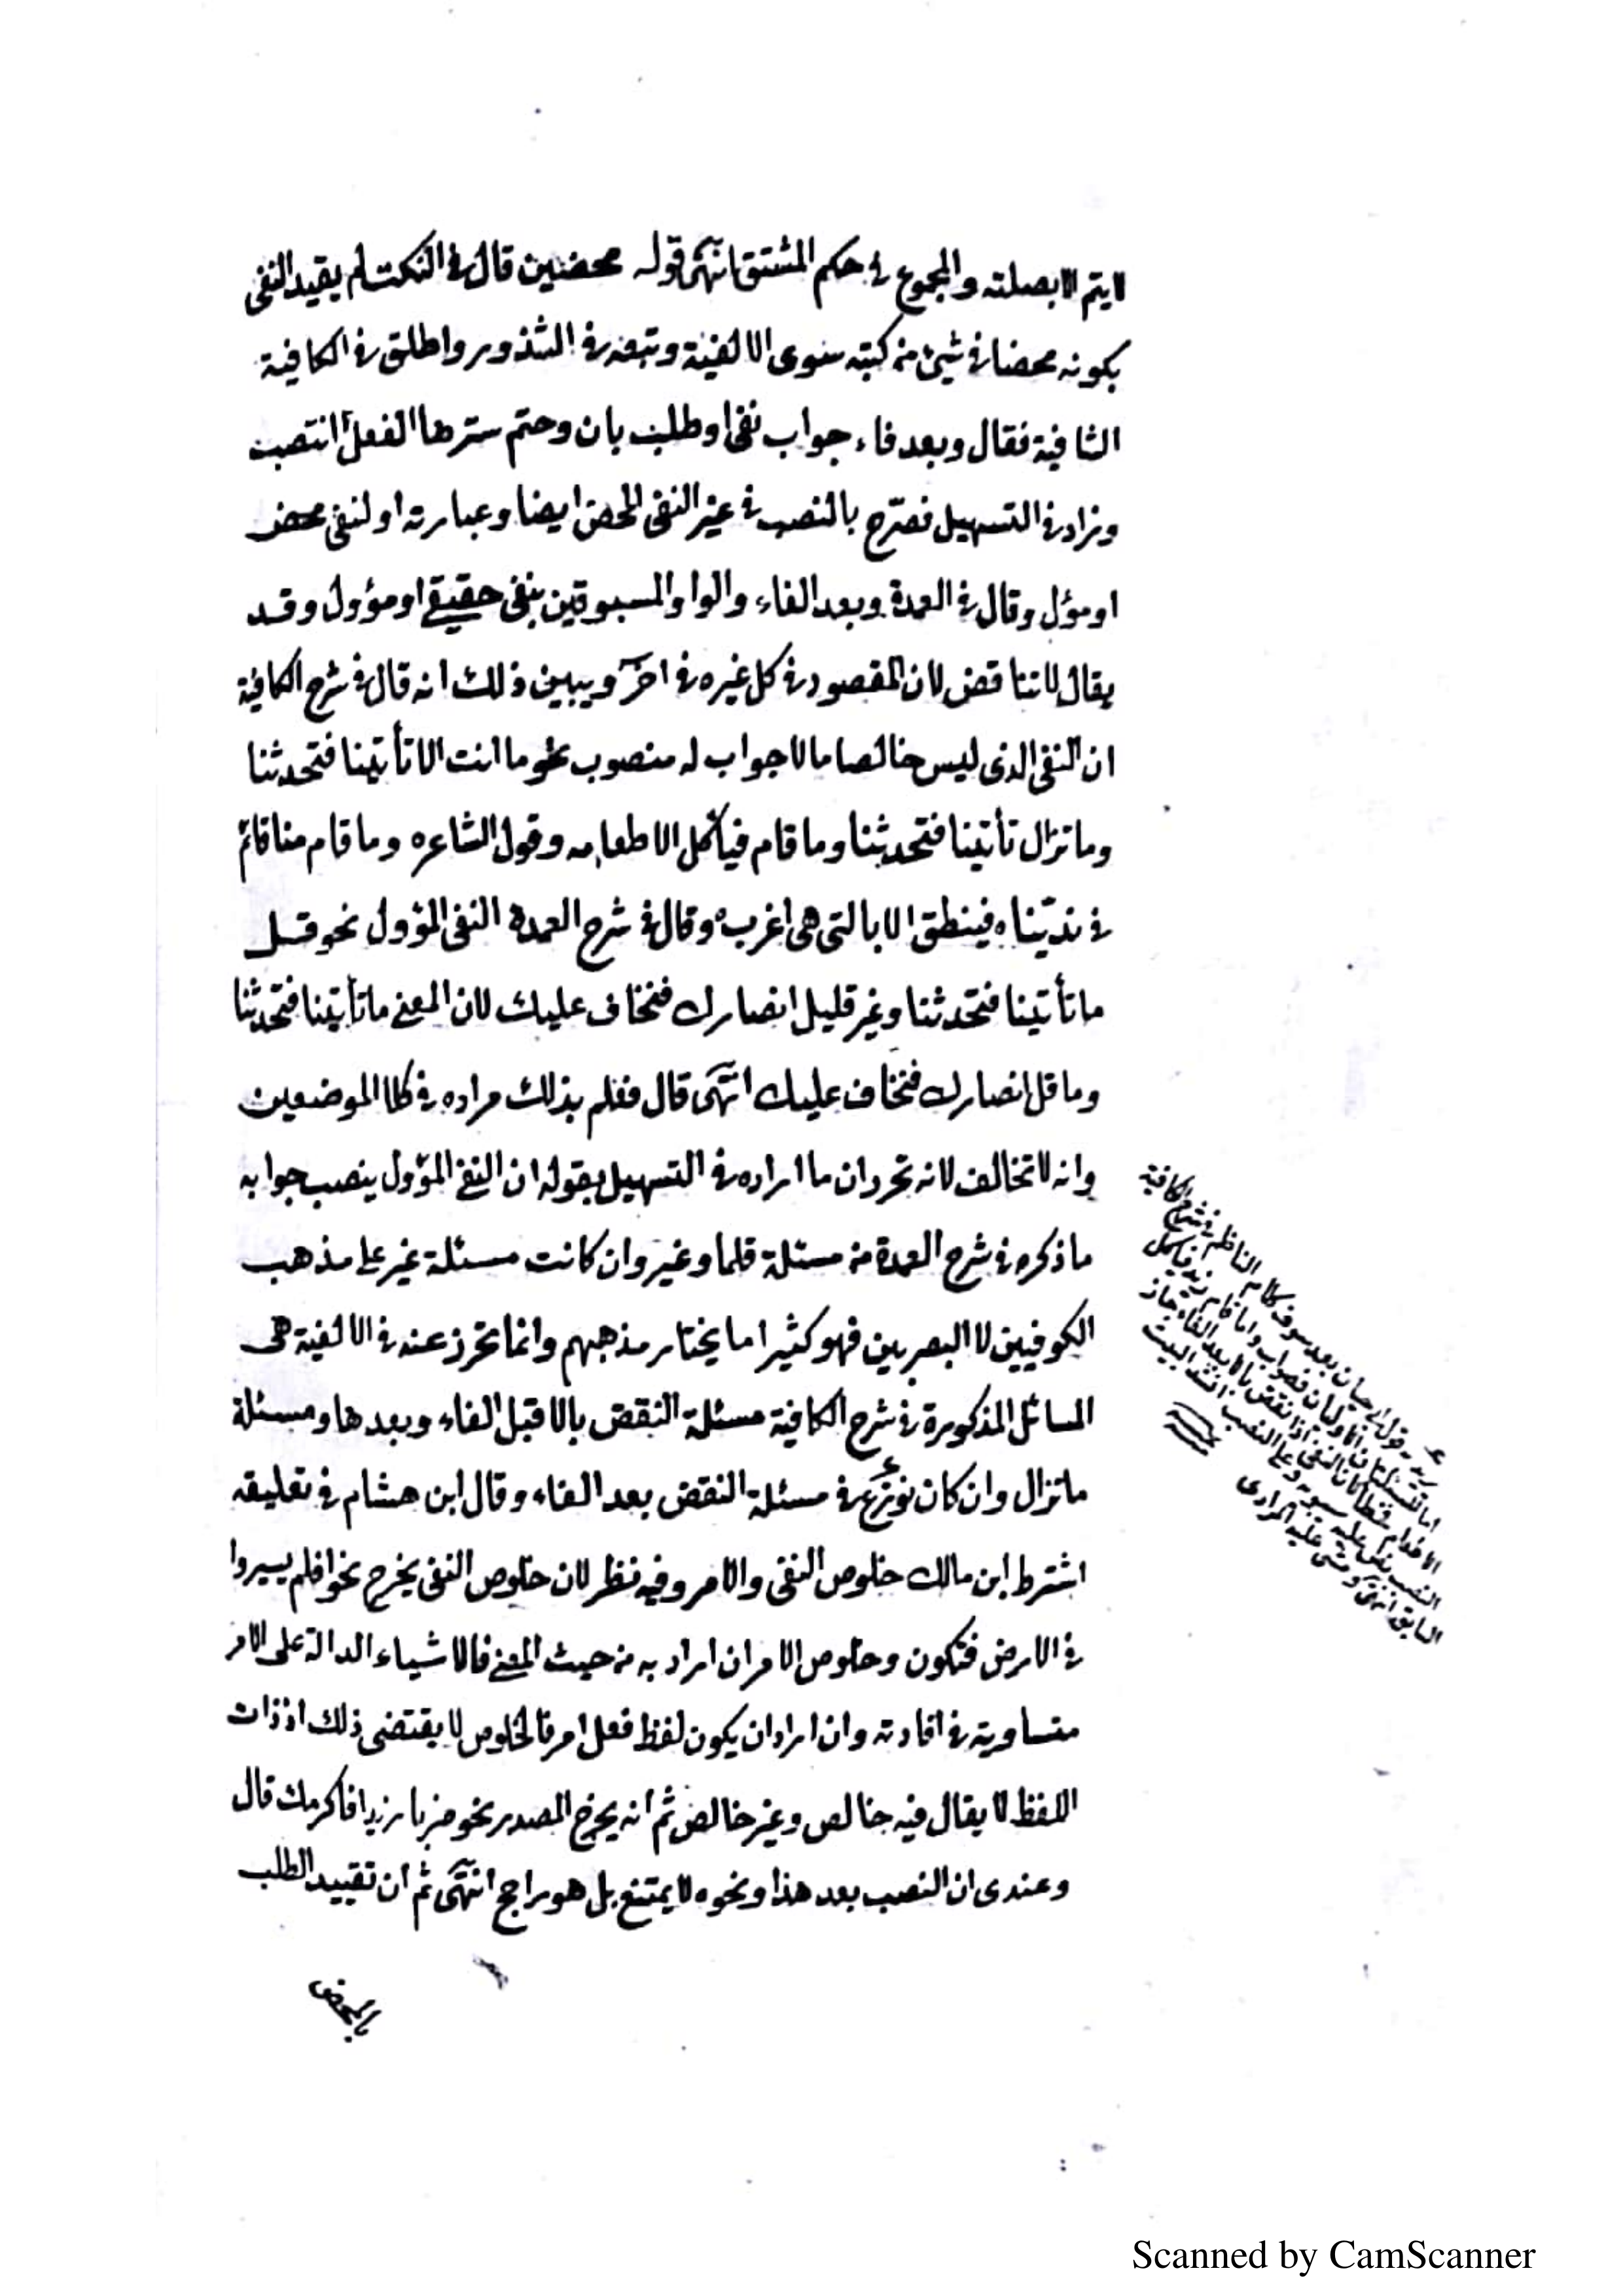 لا يتم الا بصلته والمجموع في حكم المشتق انتهى قوله محضين قال في النكت لم يقيد النفي
بكونه محضا في شيئ من كتبه سوى الالفية وتبعه في الشذور واطلق في الكافية
الشافية فقال وبعد فاء جواب نفي او طلب بان وحتم سترها الفعل انتصب
وزاد في التسهيل فصرّح بالنصب في غير النفي المحض ايضا وعبارته او لنفي محض
او مؤل وقال في العمدة وبعد الفاء والواو المسبوقين بنفي حقيقي او مؤول وقد
يقال لا تناقض لان المقصود في كل غيره في آخر ويبين ذلك انه قال في شرح الكافية
ان النفي الذي ليس خالصا ما لا جواب له منصوب نحو ما انت الا تأتينا فتحدثنا
وما تزال تأتينا فتحدثنا وما قام فيأكل الا طعامه وقول الشاعر ه وما قام منا قائم
في نديّنا ه فينطق الا بالتي هي اغرب ه وقال في شرح العمدة النفي المؤول نحو قل
ما تأتينا فتحدثنا وغير قليل انصارك فنخاف عليك لان المعنى ما تأتينا فتحدثنا
وما قل انصارك فنخاف عليك انتهى قال فعلم بذلك مراده في كلا الموضعين
وانه لا تخالف لانه تحرر ان ما اراده في التسهيل بقوله ان النفي المؤول ينصب جوابه
ما ذكره في شرح العمدة من مسئلة قلما وغير وان كانت مسئلة غير على مذهب
الكوفيين لا البصريين فهو كثيرا ما يختار مذهبهم وانما تحرز عنه في الالفية هي
المسائل المذكورة في شرح الكافية مسئلة النقض بالا قبل الفاء وبعدها ومسئلة
ما تزال وان كان نوزع في مسئلة النقض بعد الفاء وقال ابن هشام في تعليقه
اشترط ابن مالك خلوص النفي والامر وفيه نظر لان خلوص النفي يخرج نحو افلم يسيروا
في الارض فتكون وخلوص الامر ان اراد به من حيث المعنى فالاشياء الدالة على الامر
متساوية في افادته وان اراد ان يكون لفظ فعل امر فالخلوص لا يقتضي ذلك اذ ذات
اللفظ لا يقال فيه خالص وغير خالص ثم انه يخرج المصدر نحو ضربا زيدا فاكرمك قال
وعندي ان النصب بعد هذا ونحوه لا يمتنع بل هو راجح انتهى ثم ان تقييد الطلب
بالمحض
قول ابي حيان بعد سوقه كلام الناظم في شرح الكافية
النصب نص عليه سيبويه وعلى النصب انشد البيت
السابق انتهى ومشى عليه المرادي
Scanned by CamScanner